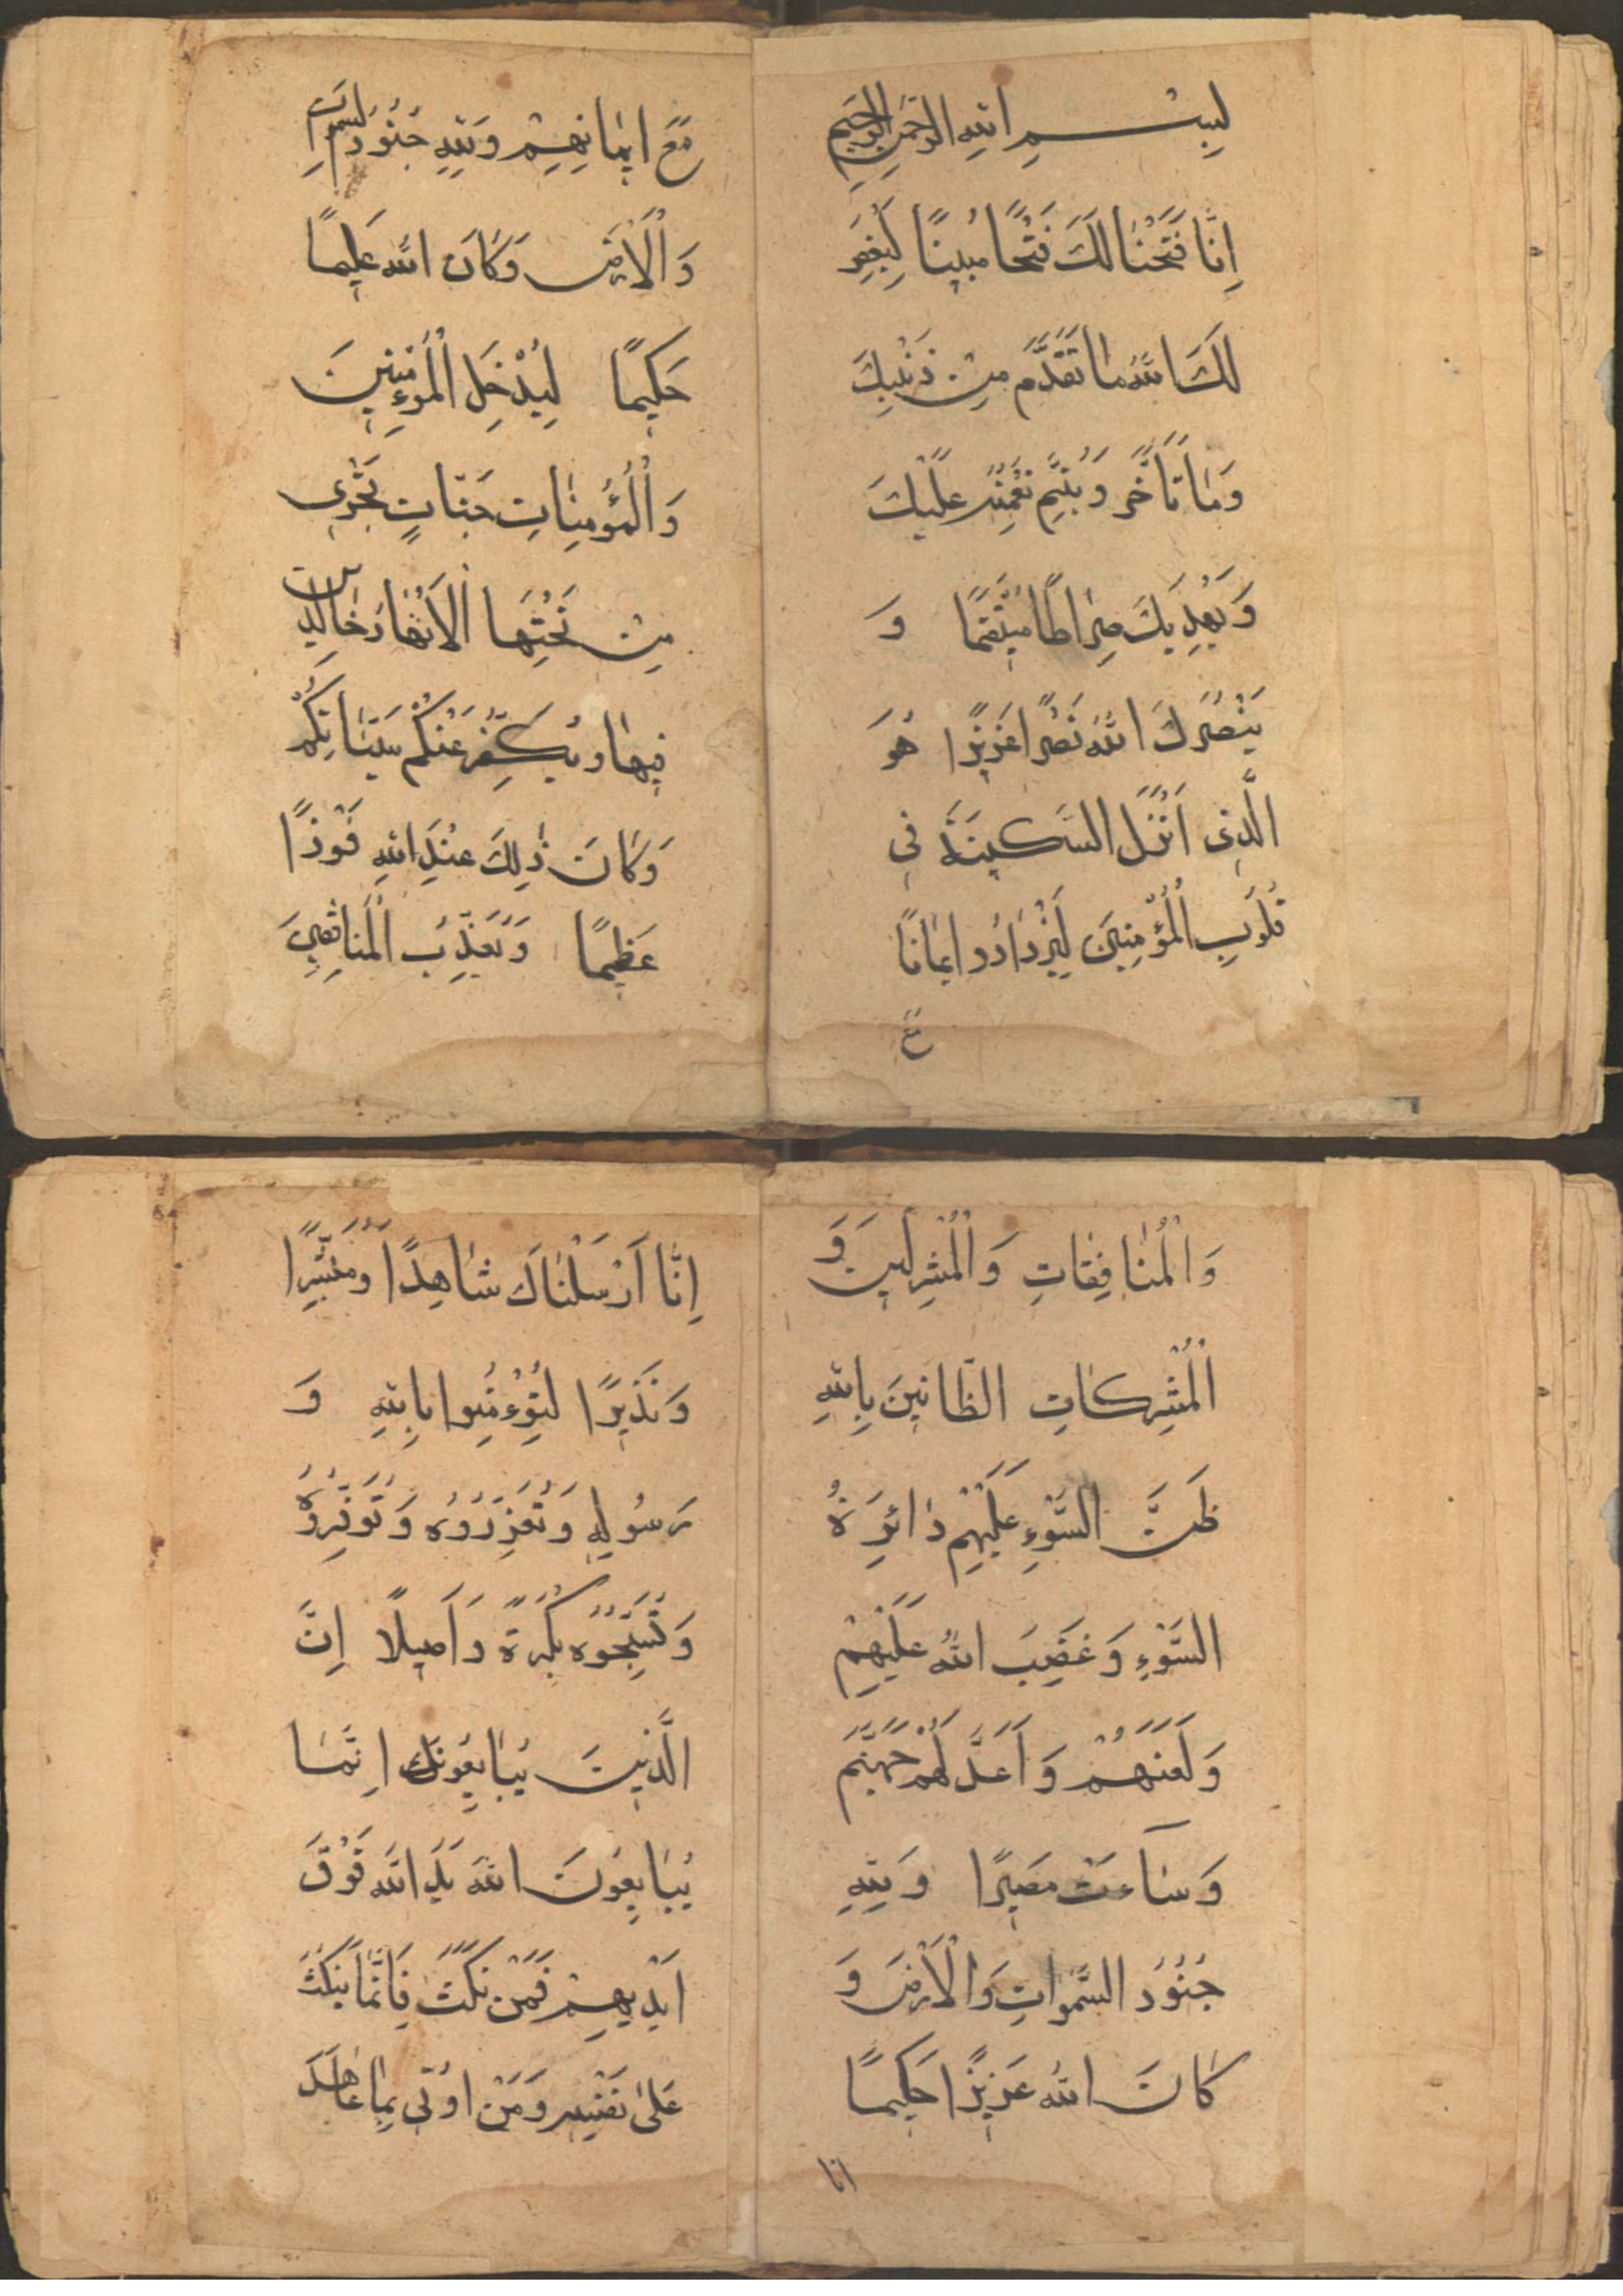 بِسْمِ اللهِ الرَّحْمَنِ الرَّحِيمِ
اِنَّا فَتَحْنَا لَكَ فَتْحًا مُبِينًا لِيَغْفِرَ
لَكَ اللهُ مَا تَقَدَّمَ مِنْ ذَنْبِكَ
وَمَا تَاَخَّرَ وَيُتِمَّ نِعْمَتَهُ عَلَيْكَ
وَيَهْدِيَكَ صِرَاطًا مُسْتَقِيمًا وَ
يَنْصُرَكَ اللهُ نَصْرًا عَزِيزًا هُوَ
الَّذِى اَنْزَلَ السَّكِينَةَ فِى
قُلُوبِ الْمُؤْمِنِينَ لِيَزْدَادُوا اِيمَانًا
مَعَ
مَعَ اِيمَانِهِمْ وَلِلّٰهِ جُنُودُ السَّمَوَاتِ
وَالْاَرْضِ وَكَانَ اللهُ عَلِيمًا
حَكِيمًا لِيُدْخِلَ الْمُوءْمِنِينَ
وَالْمُؤْمِنَاتِ جَنَّاتٍ تَجْرِى
مِنْ تَحْتِهَا الْاَنْهَارُ خَالِدِينَ
فِيهَا وَيُكَفِّرَ عَنْكُمْ سَيِّئَاتِكُمْ
وَكَانَ ذٰلِكَ عِنْدَ اللهِ فَوْزًا
عَظِيمًا وَيُعَذِّبَ الْمُنَافِقِينَ
وَالْمُنَافِقَاتِ وَالْمُشْرِكِينَ وَ
الْمُشْرِكَاتِ الظَّانِّينَ بِاللهِ
ظَنَّ السَّوْءِ عَلَيْهِمْ دَائِرَةُ
السَّوْءِ وَغَضِبَ اللهُ عَلَيْهِمْ
وَلَعَنَهُمْ وَاَعَدَّ لَهُمْ جَهَنَّمَ
وَسَآءَتْ مَصِيرًا وَلِلّٰهِ
جُنُودُ السَّمَوَاتِ وَالْاَرْضِ وَ
كَانَ اللهُ عَزِيزًا حَكِيمًا
انا
اِنَّا اَرْسَلْنَاكَ شَاهِدًا وَمُبَشِّرًا
وَنَذِيرًا لِتُوءْمِنُوا بِاللهِ وَ
رَسُولِهِ وَتُعَزِّرُوهُ وَتُوَقِّرُوهُ
وَتُسَبِّحُوهُ بُكْرَةً وَاَصِيلًا اِنَّ
الَّذِينَ يُبَايِعُونَكَ اِنَّمَا
يُبَايِعُونَ اللهَ يَدُ اللهِ فَوْقَ
اَيْدِيهِمْ فَمَنْ نَكَثَ فَاِنَّمَا يَنْكُثُ
عَلَىٰ نَفْسِهِ وَمَنْ اَوْفَى بِمَا عَاهَدَ